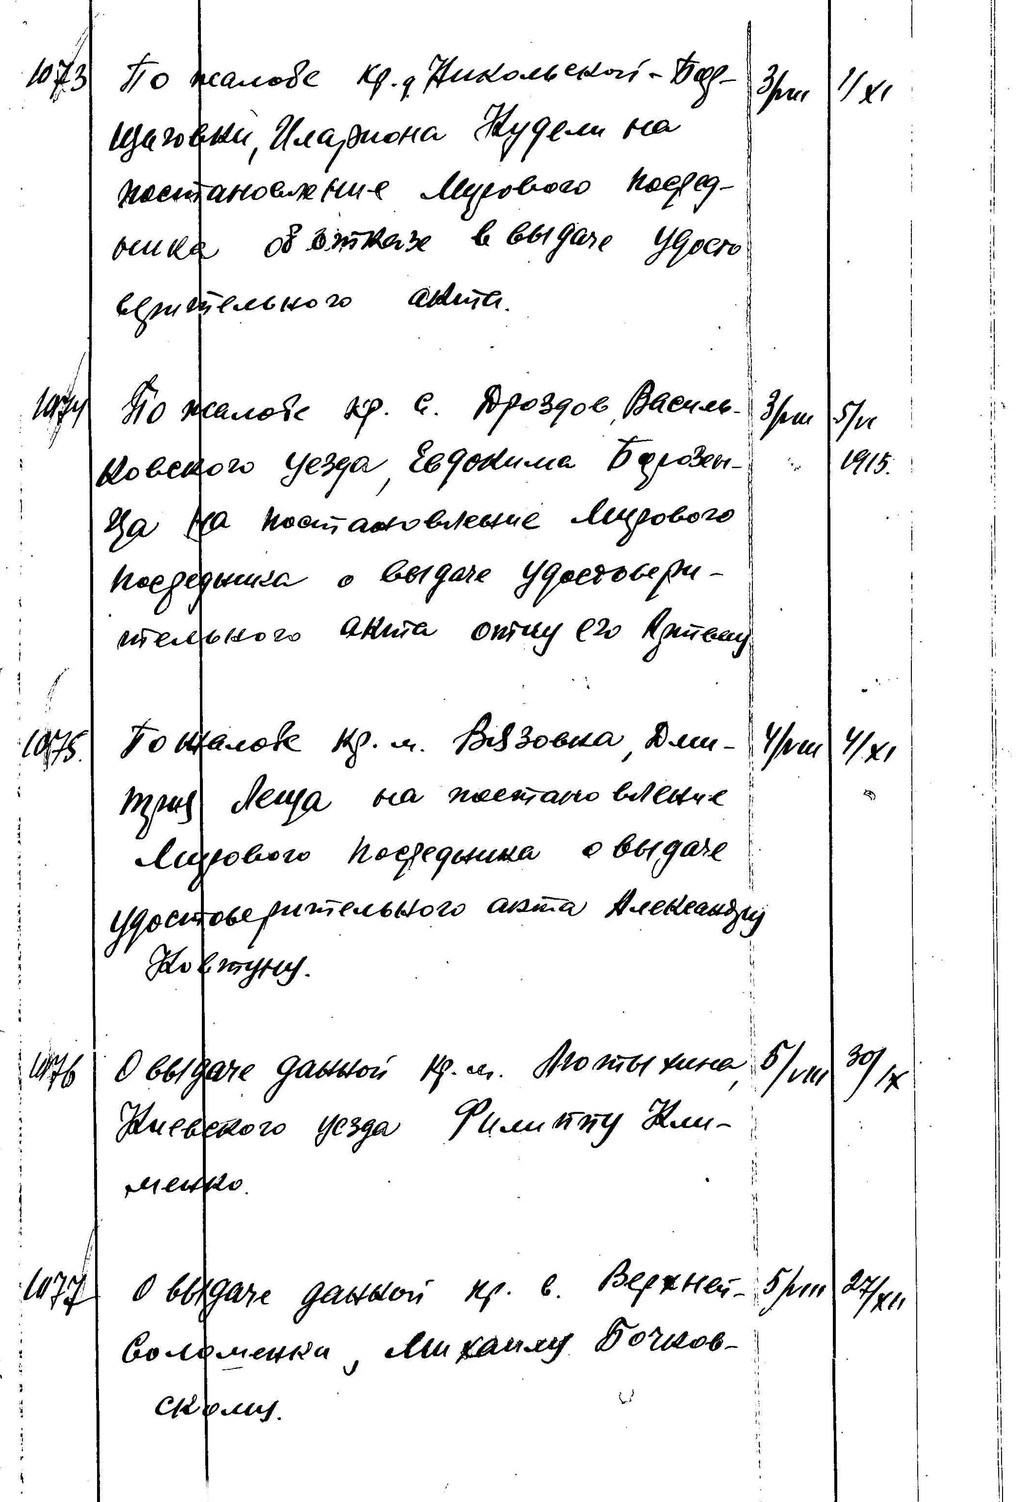 1073 По жалобе кр. д. Никольской-Бор- 3/VIII 1/XI
щаговки, Илариона Кудели на
постановление Мирового Посред-
ника об отказе в выдаче удосто
верительного акта.
1074 По жалобе кр. с. Дроздов, Василь- 3/VIII 5/VI
ковского уезда, Евдокима Борозен- 1915.
ца на постановление Мирового
Посредника о выдаче удостовери-
тельного акта отцу его Артему
1075. По жалобе кр. м. Вязовка, Дми- 4/VIII 4/XI
трия Леща на постановление
Мирового Посредника о выдаче
удостоверительного акта Александру
Ковтуну.
1076 О выдаче данной кр. м. Мотыжина, 5/VIII 30/IX
Киевского уезда Филиппу Кли-
менко.
1077 О выдаче данной кр. с. Верхней- 5/VIII 27/XII
Соломенки, Михаилу Бочков-
скому.